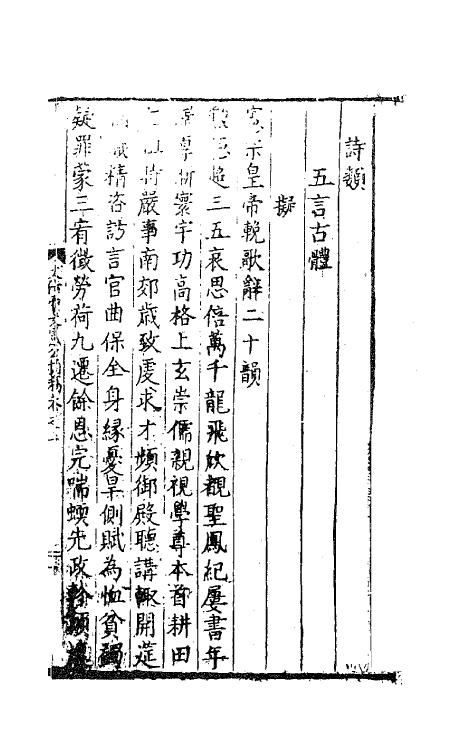 詩類
五言古體
擬
宗皇帝輓歌辭二十韻
超三五哀思倍萬千龍飛欣覩聖鳳紀屢書年
寰宇功高格上玄崇儒親視學尊本首耕田
嚴事南郊歲致虔求才頻御殿聽講輙開莚
精咨訪言官曲保全身緣憂旱側賦為恤貧蠲
疑罪蒙三宥微勞荷九遷餘恩完喘蝡先政